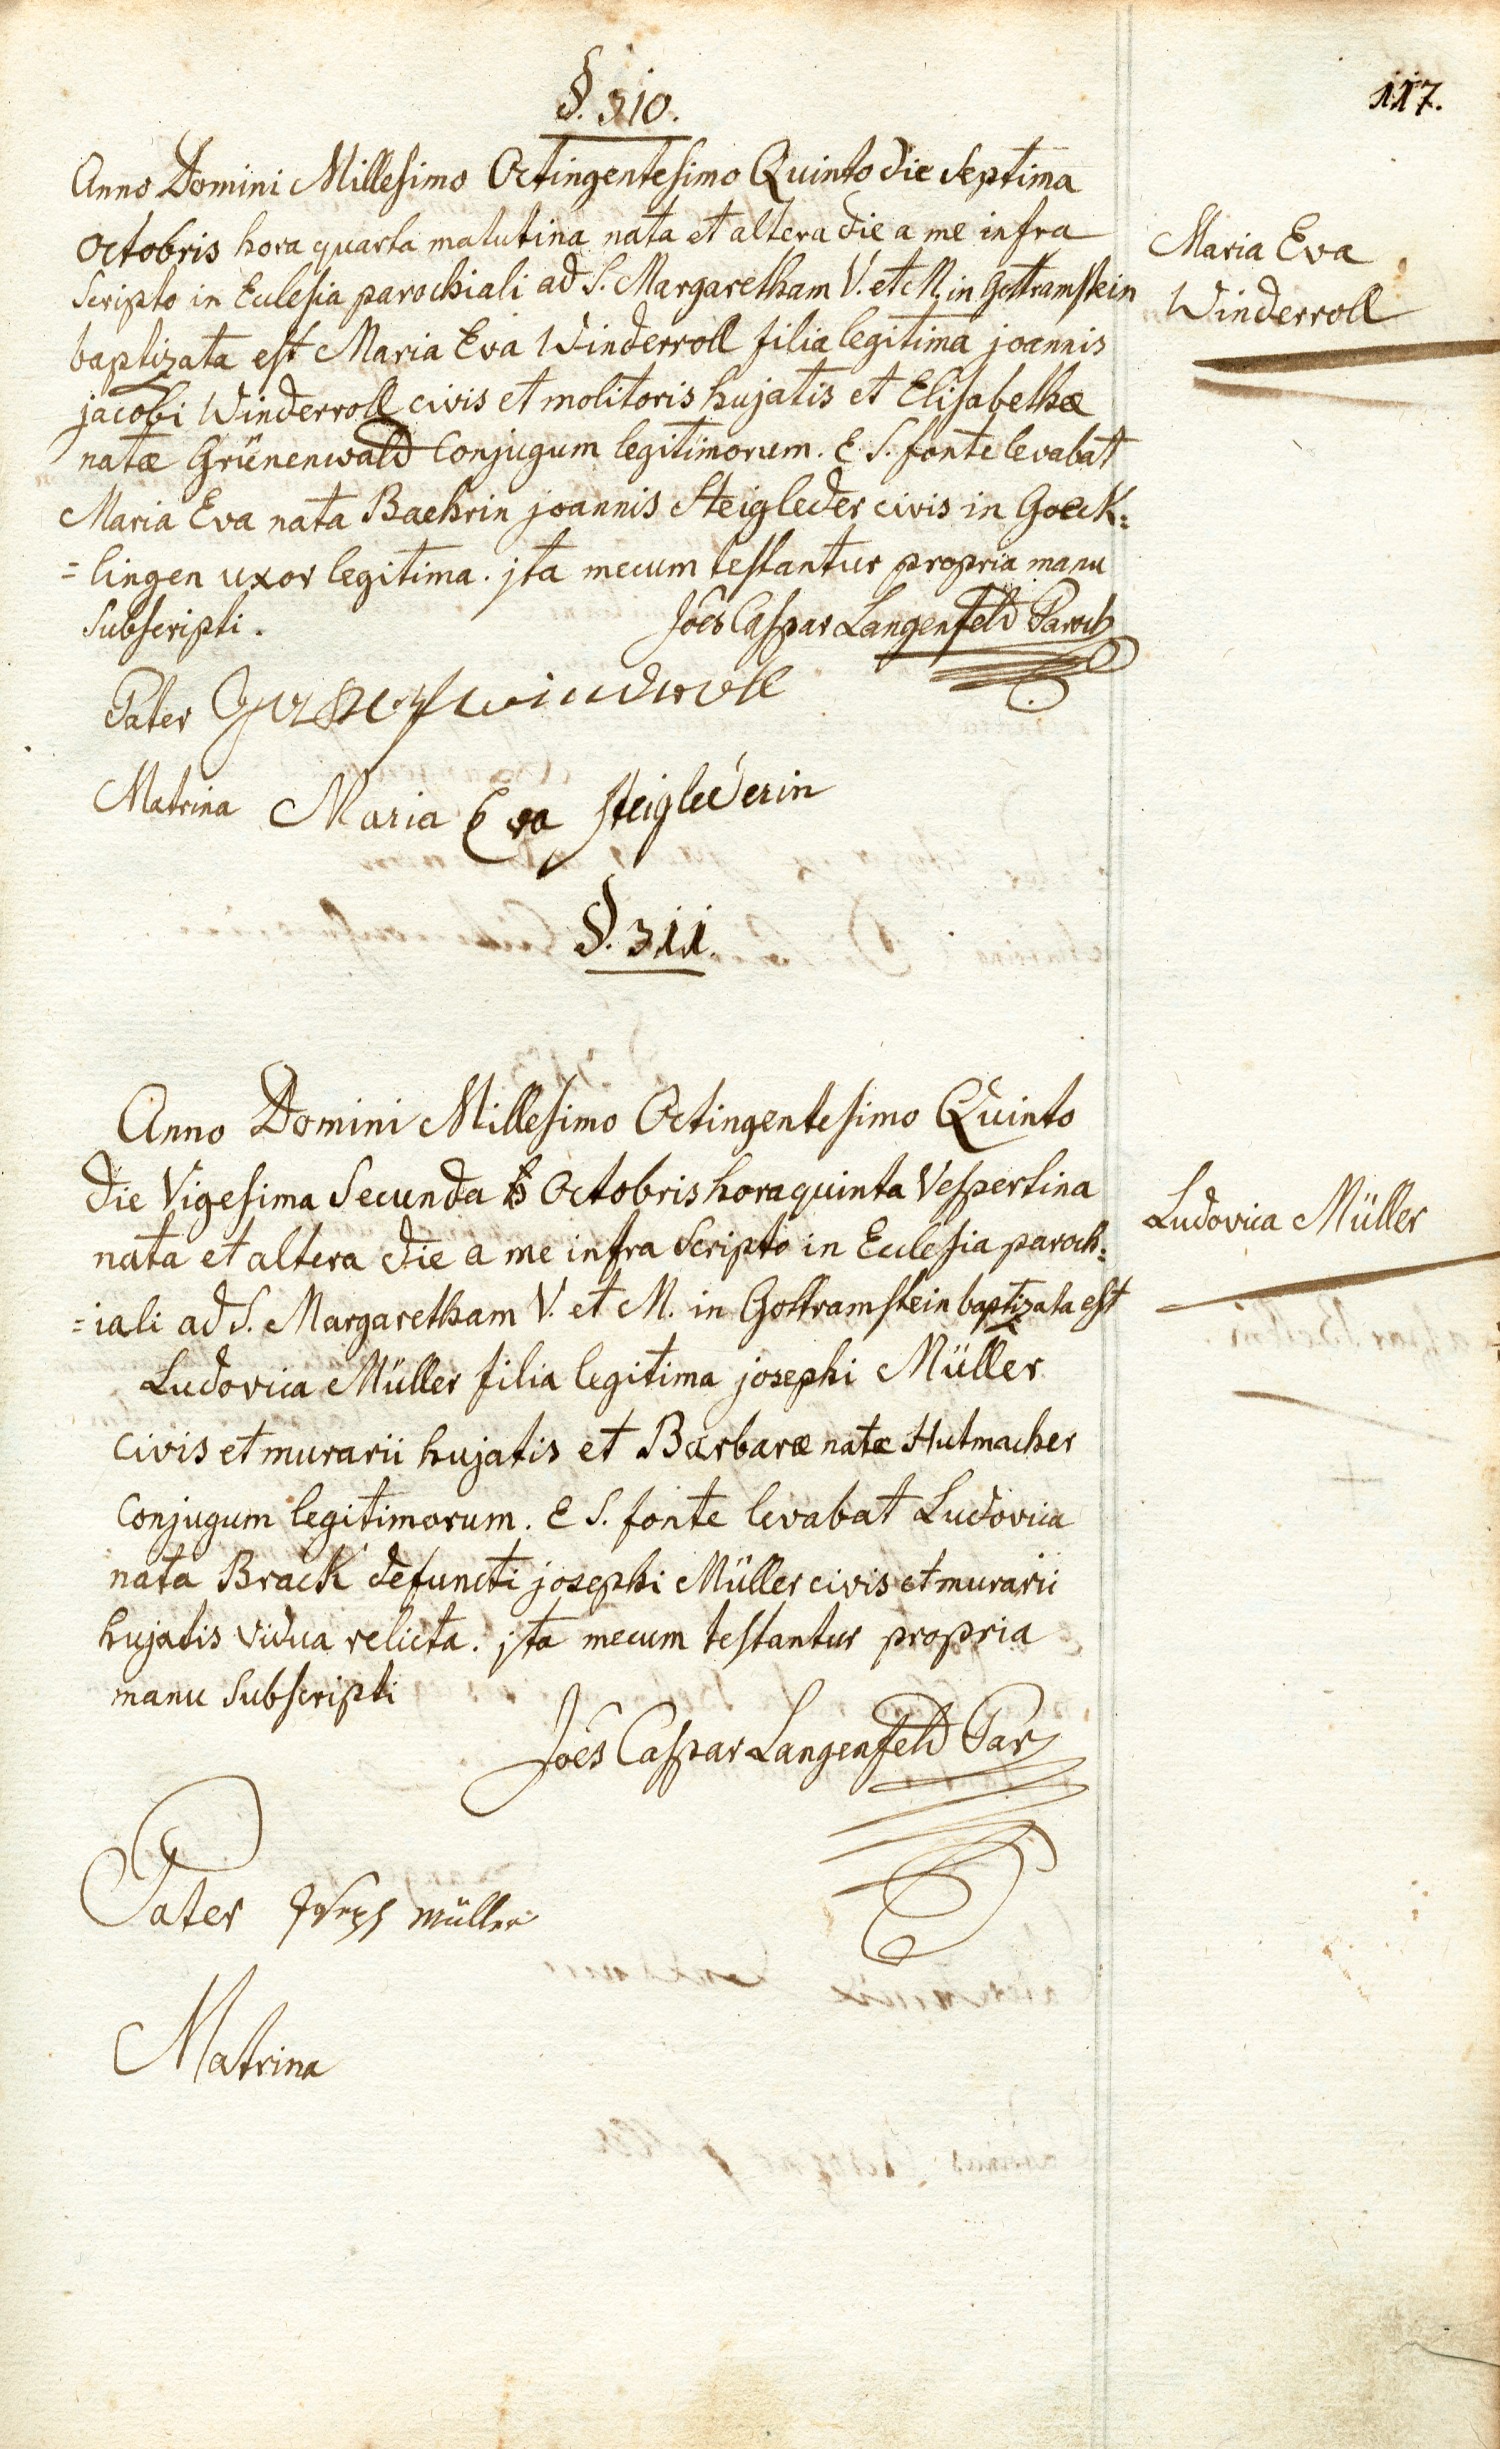 117.
§. 310.
Anno Domini Millesimo Octingentesimo Quinto die septima
octobris hora quarta matutina nata et altera die a me infra
scripto in Eclesia parochiali ad S. Margaretham V. et M. in Gottramstein
baptizata est Maria Eva Winderroll filia legitima joannis
jacobi Winderroll civis et molitoris hujatis et Elisabethæ
natæ Grünenwald Conjugum legitimorum. E S. fonte levabat
Maria Eva nata Baehrin joannis Steigleder civis in Goeck=
=lingen uxor legitima. jta mecum testantur propria manu
subscripti.
Joês Caspar Langenfeld Paroch
Pater winderroll
Matrina Maria Eva steiglederin
Maria Eva
Winderroll
§. 311.
Anno Domini Millesimo Octingentesimo Quinto
die Vigesima Secunda Octobris hora quinta Vespertina
nata et altera die a me infra scripto in Eclesia paroch=
=iali ad S. Margaretham V. et M. in Gottramstein baptizata est
Ludovica Müller filia legitima josephi Müller
civis et murarii hujatis et Barbaræ natæ Hutmacher
Conjugum legitimorum. E S. fonte levabat Ludovica
nata Brack defuncti josephi Müller civis et murarii
hujatis vidua relicta. jta mecum testantur propria
manu subscripti
Joês Caspar Langenfeld Par
Pater Joseph Müller
Matrina
Ludovica Müller